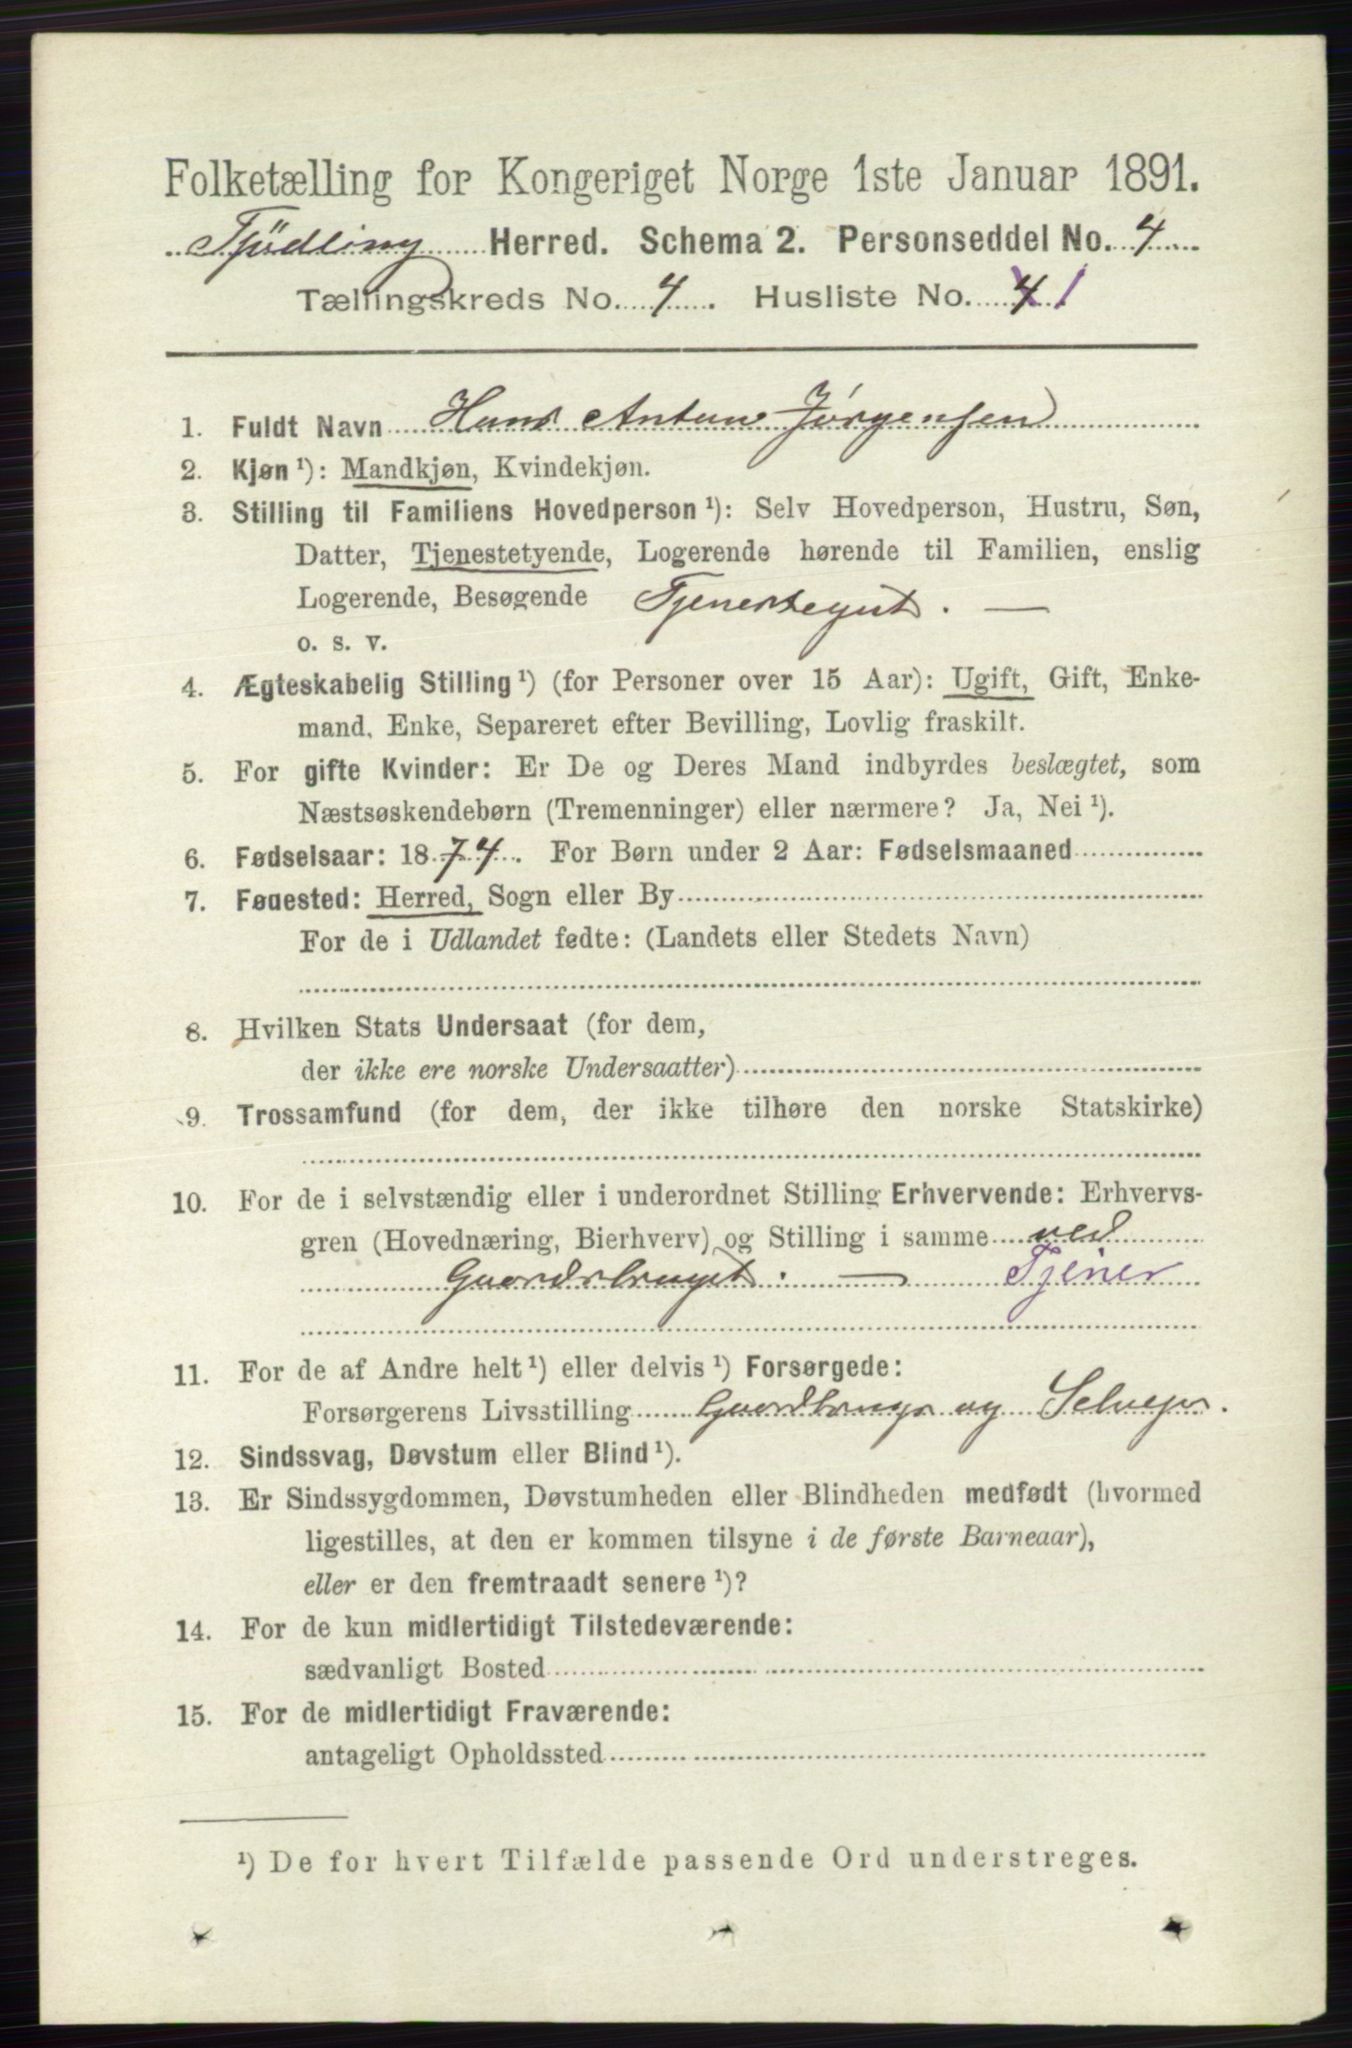 Folketælling for Kongeriget Norge 1ste Januar 1891.
Tjödling Herred. Schema 2. Personseddel No. 4
Tællingskreds No. 4. Husliste No. 4 1
1. Fuldt Navn Hans Anton Jörgensen
2. Kjøn ¹): Mandkjøn, Kvindekjøn.
3. Stilling til Familiens Hovedperson ¹): Selv Hovedperson, Hustru, Søn,
Datter, Tjenestetyende, Logerende hørende til Familien, enslig
Logerende, Besøgende Tjenestegut. —
o. s. v.
4. Ægteskabelig Stilling ¹) (for Personer over 15 Aar): Ugift, Gift, Enke-
mand, Enke, Separeret efter Bevilling, Lovlig fraskilt.
5. For gifte Kvinder: Er De og Deres Mand indbyrdes beslægtet, som
Næstsøskendebørn (Tremenninger) eller nærmere? Ja, Nei ¹).
6. Fødselsaar: 1874. For Børn under 2 Aar: Fødselsmaaned
7. Fødested: Herred, Sogn eller By
For de i Udlandet fødte: (Landets eller Stedets Navn)
8. Hvilken Stats Undersaat (for dem,
der ikke ere norske Undersaatter)
9. Trossamfund (for dem, der ikke tilhøre den norske Statskirke)
10. For de i selvstændig eller i underordnet Stilling Erhvervende: Erhvervs-
gren (Hovednæring, Bierhverv) og Stilling i samme ved
Gaardsbruget. — Tjener
11. For de af Andre helt ¹) eller delvis ¹) Forsørgede:
Forsørgerens Livsstilling Gaardbruger og Selvejer.
12. Sindssvag, Døvstum eller Blind ¹).
13. Er Sindssygdommen, Døvstumheden eller Blindheden medfødt (hvormed
ligestilles, at den er kommen tilsyne i de første Barneaar),
eller er den fremtraadt senere ¹)?
14. For de kun midlertidigt Tilstedeværende:
sædvanligt Bosted
15. For de midlertidigt Fraværende:
antageligt Opholdssted
¹) De for hvert Tilfælde passende Ord understreges.